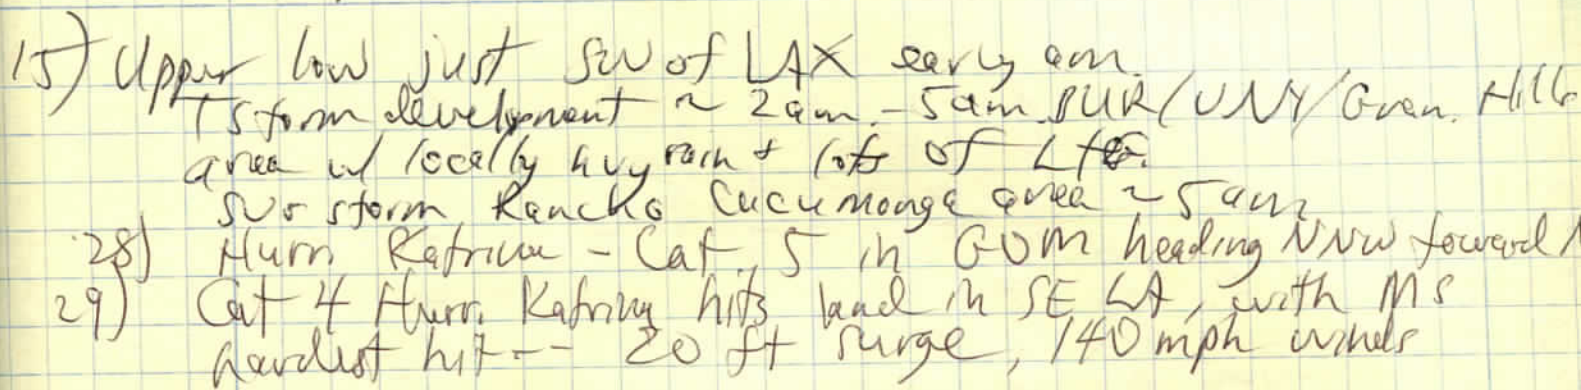 15) Upper low just SW of LAX early am.
TStorm development ~ 2am - 5am BUR/VNY/Gran. Hills
area w/ locally hvy rain & lots of Ltg.
Svr storm Rancho Cucumonga area ~ 5am
28) Hurr Katrina - Cat. 5 in GOM heading NNW toward
29) Cat 4 Hurr. Katrina hits land in SE LA, with MS
hardest hit -- 20 ft surge, 140 mph winds